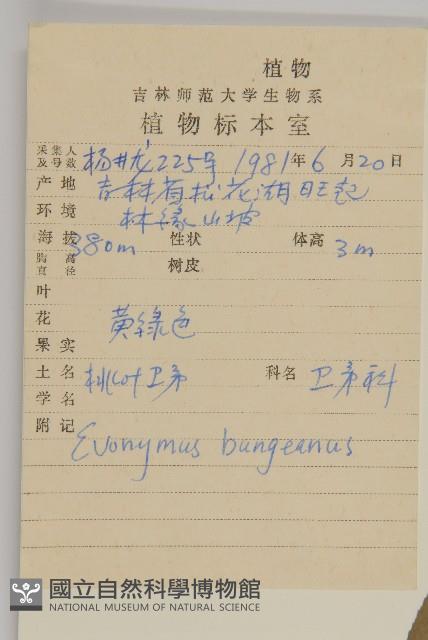 植物
吉林师范大学生物系
植物标本室
采集人及号数 杨 225号 1981年6月20日
产地 吉林省松花湖
环境 林缘山坡
海拔 380m 性状 体高 3m
胸高直径 树皮
叶
花 黄绿色
果实
土名 桃叶卫矛 科名 卫矛科
学名
附记 Evonymus bungeanus
國立自然科學博物館
NATIONAL MUSEUM OF NATURAL SCIENCE